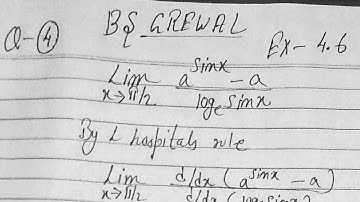 BS GREWAL
Q-④ Ex-4.6
Lim x→π/2 (a^sinx - a) / (log_e sinx)
By L hospitals rule
Lim x→π/2 d/dx (a^sinx - a) / d/dx (log_e sinx)